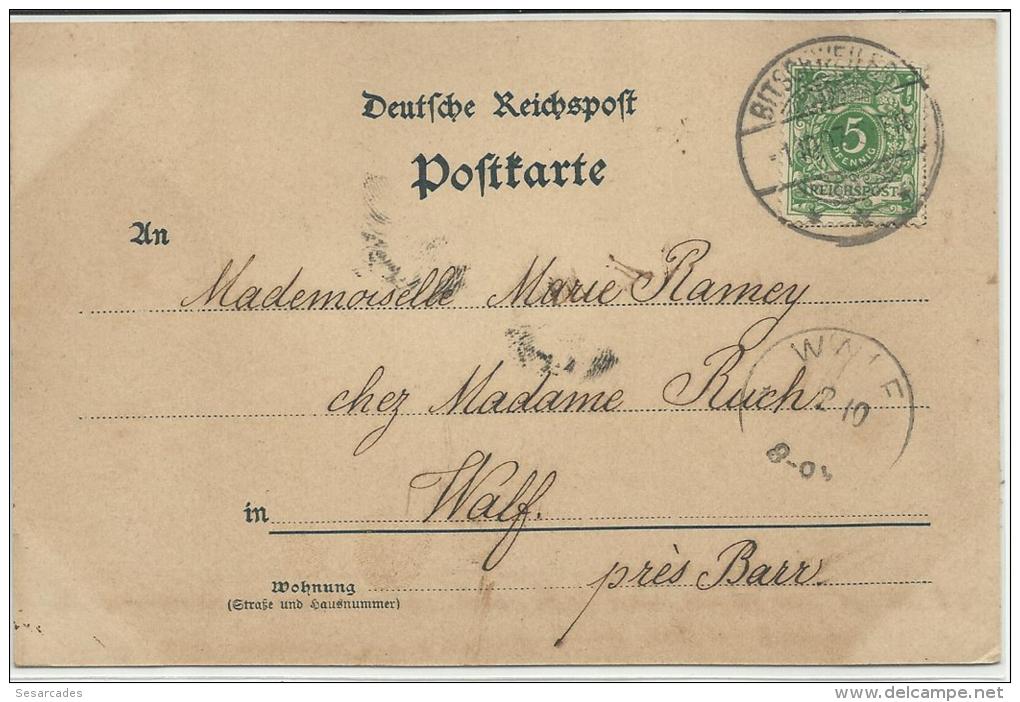 BITSCHWEILER
Deutsche Reichspost
5
PFENNIG
REICHSPOST
Postkarte
An
Mademoiselle Marie Ramey
chez Madame Ruch
2 10
Walf.
in
près Barr.
Wohnung
(Straße und Hausnummer)
Sesarcades
delcampe.net